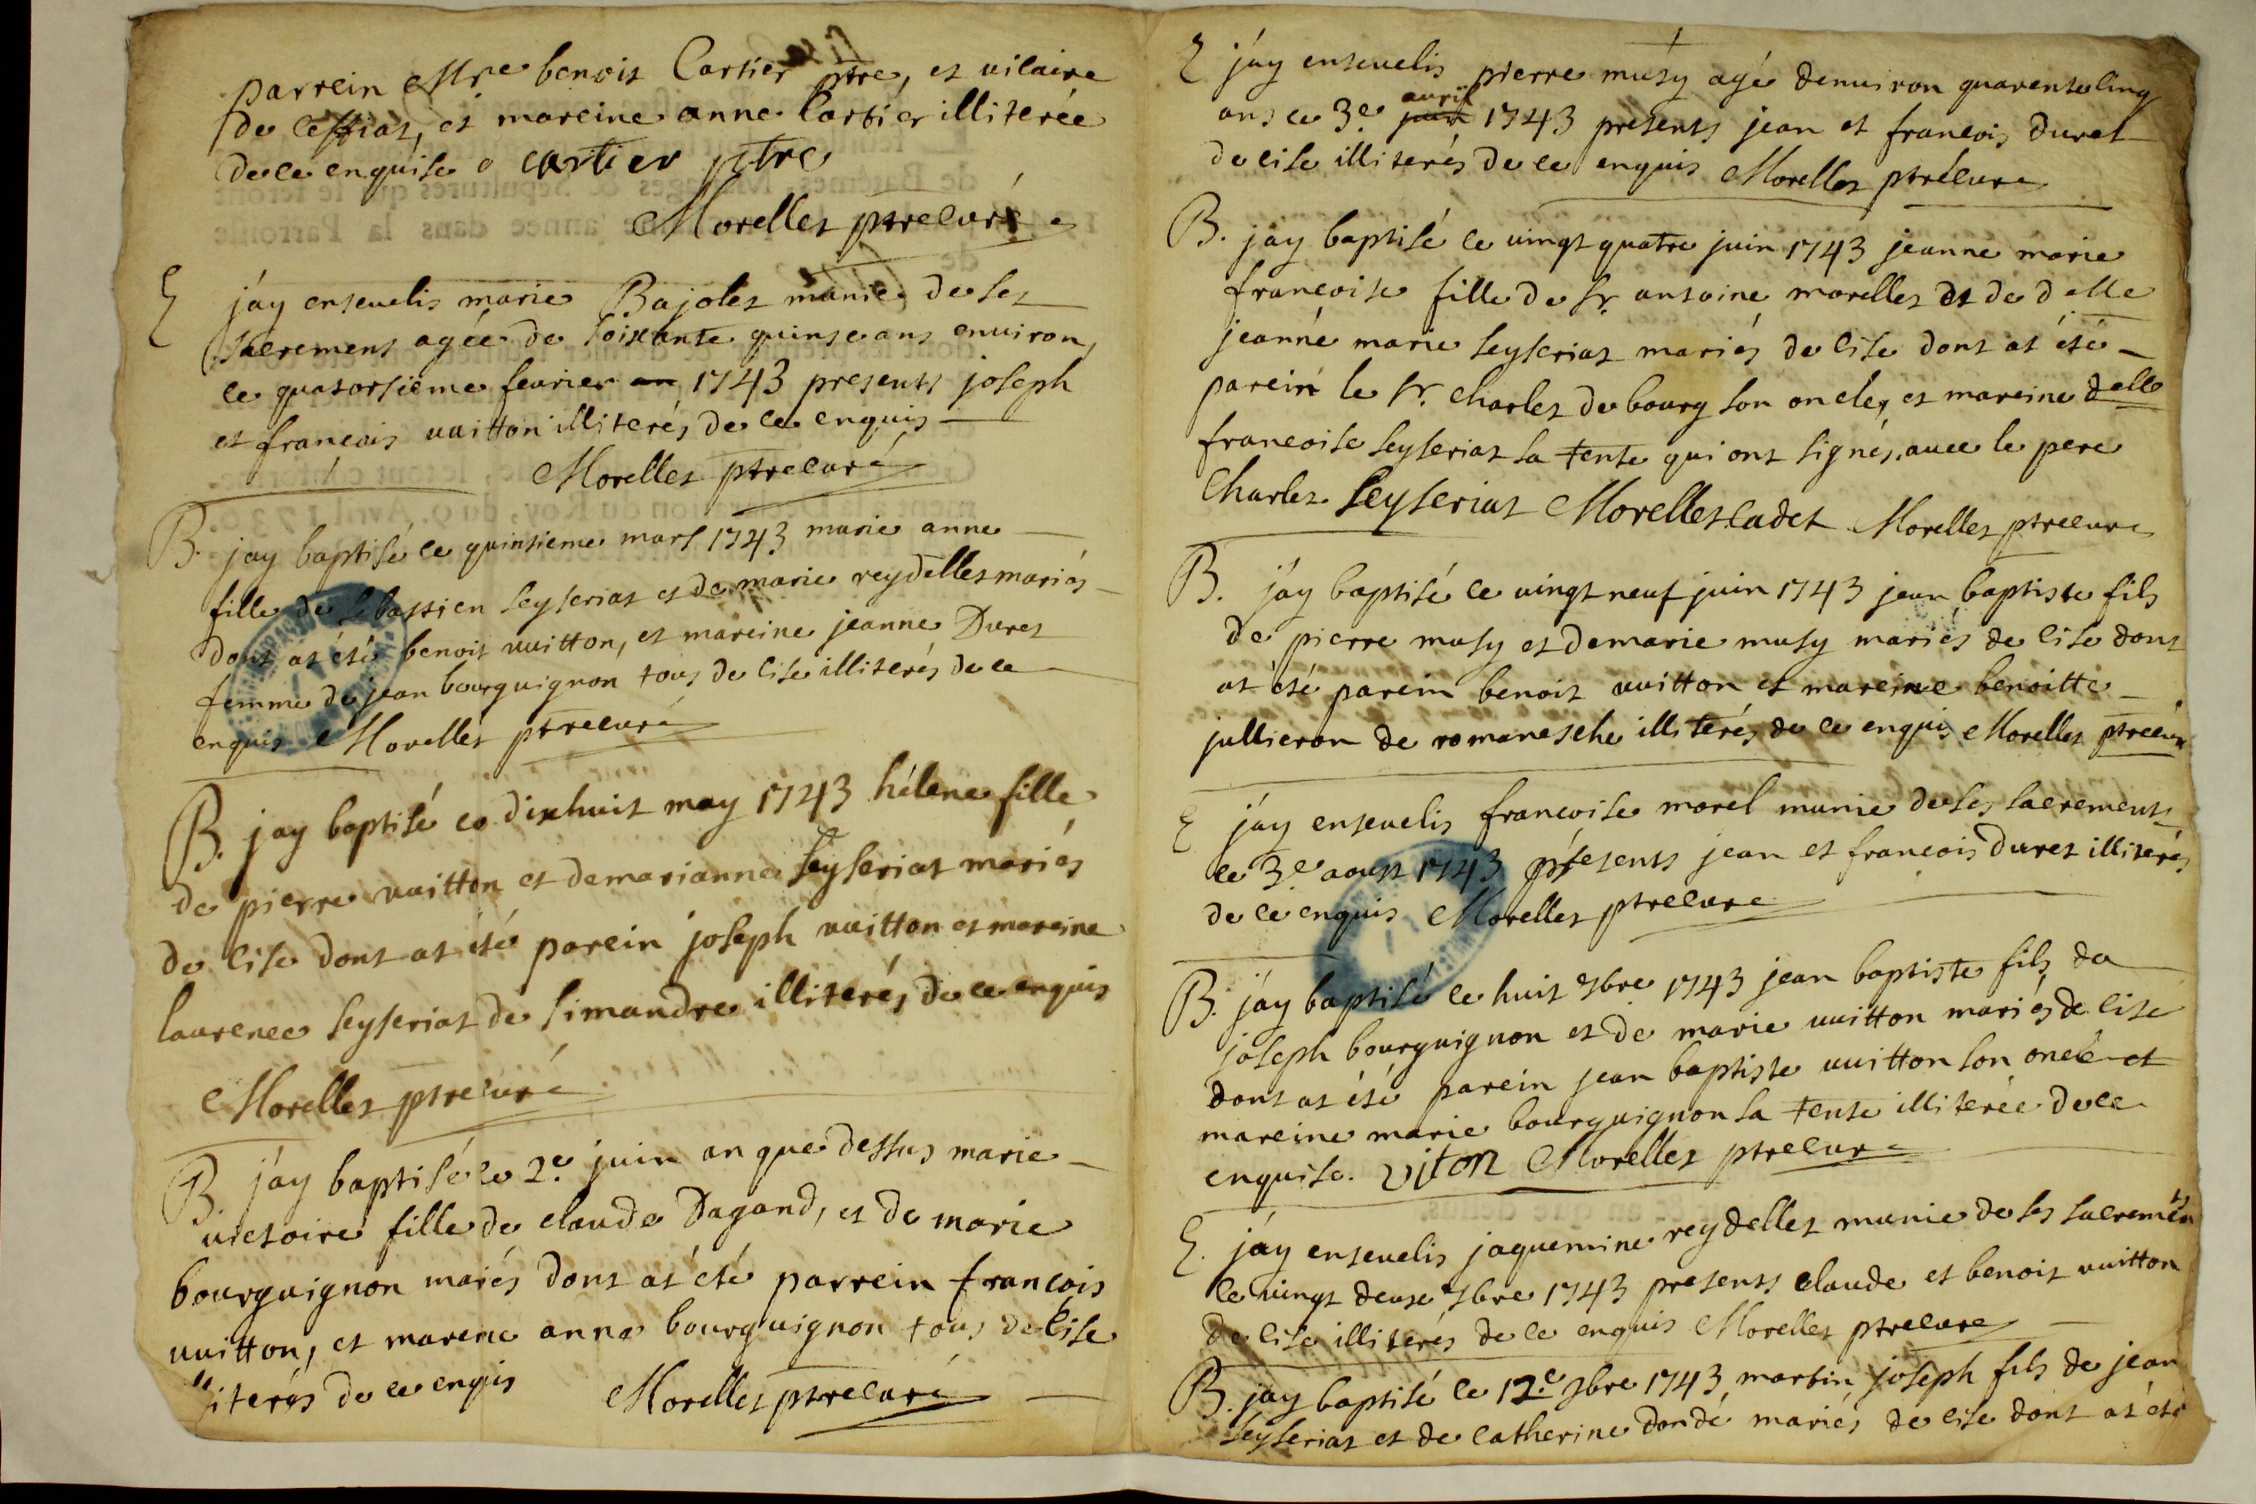 parrein Mre benoit Cartier ptre, et vicaire
de ceffiat, et mareine anne Cartier illiterée
de ce enquise cartier ptre
Morellet ptre curé
E jáy enseuelis marie Bajolet munie de ses
sacremens agée de soixante quinse ans enuiron,
ce quatorsieme feurier 1743 presents joseph
et francois uuitton illiterés de ce enquis
Morellet ptre curé
B. jay baptisé ce quinsieme mars 1743 marie anne
fille de sebastien seyseriat et de marie reydellet mariés
dont at été benoit uuitton, et mareine jeanne Duret
femme de jean bourguignon tous de cise illiterés de ce
enquis Morellet ptre curé
B. jay baptisé ce dixhuit may 1743 hélene fille
de pierre uuitton et de marianne seyseriat mariés
de cise dont at été parein joseph uuitton et mareine
laurence seyseriat de simandre illiterés de ce enquis
Morellet ptre curé
B. jáy baptisé le 2.e juin an que dessus marie
uictoire fille de claude Dagand, et de marie
bourguignon mariés dont at été parrein francois
uuitton, et marene anne bourguignon tous de cise
iterés de ce enquis Morellet ptre curé
E jáy enseuelis pierre músy agé denuiron quarente cinq
ans ce 3.e auril 1743 presents jean et francois duret
de cise illiterés de ce enquis Morellet ptre curé
B. jáy baptisé ce uingt quatre juin 1743 jeanne marie
francoise fille de sr. antoine morellet et de delle
jeanne marie seyseriat mariés de cise dont at été
parein le sr. charles de bourg son oncle, et mareine delle
francoise seyseriat sa tente qui ont signés auec le pere
Charles Seyseriat Morellet Cadet Morellet ptre curé
B. jáy baptisé ce uingt neuf juin 1743 jean baptiste fils
de pierre musy et de marie musy mariés de cise dont
at été parein benoit uuitton et mareine benoitte
jullieron de romanesche illiterés de ce enquis Morellet ptre curé
E jáy enseuelis francoise morel munie de ses sacrements
ce 3.e aoust 1743 présents jean et francois duret illiterés
de ce enquis Morellet ptre curé
B. jáy baptisé ce huit 7bre 1743 jean baptiste fils de
joseph bourguignon et de marie uuitton mariés de cise
dont at été parein jean baptiste uuitton son oncle et
mareine marie bourguignon sa tente illiterée de ce
enquise. viton Morellet ptre curé
E. jáy enseuelis jaquemine reydellet munie de ses sacremens
ce uingt deuse 7bre 1743 presents claude et benoit uuitton
de cise illiterés de ce enquis Morellet ptre curé
B. jay baptisé ce 12.e 9bre 1743 martin joseph fils de jean
seyseriat et de catherine dondé mariés de cise dont at été